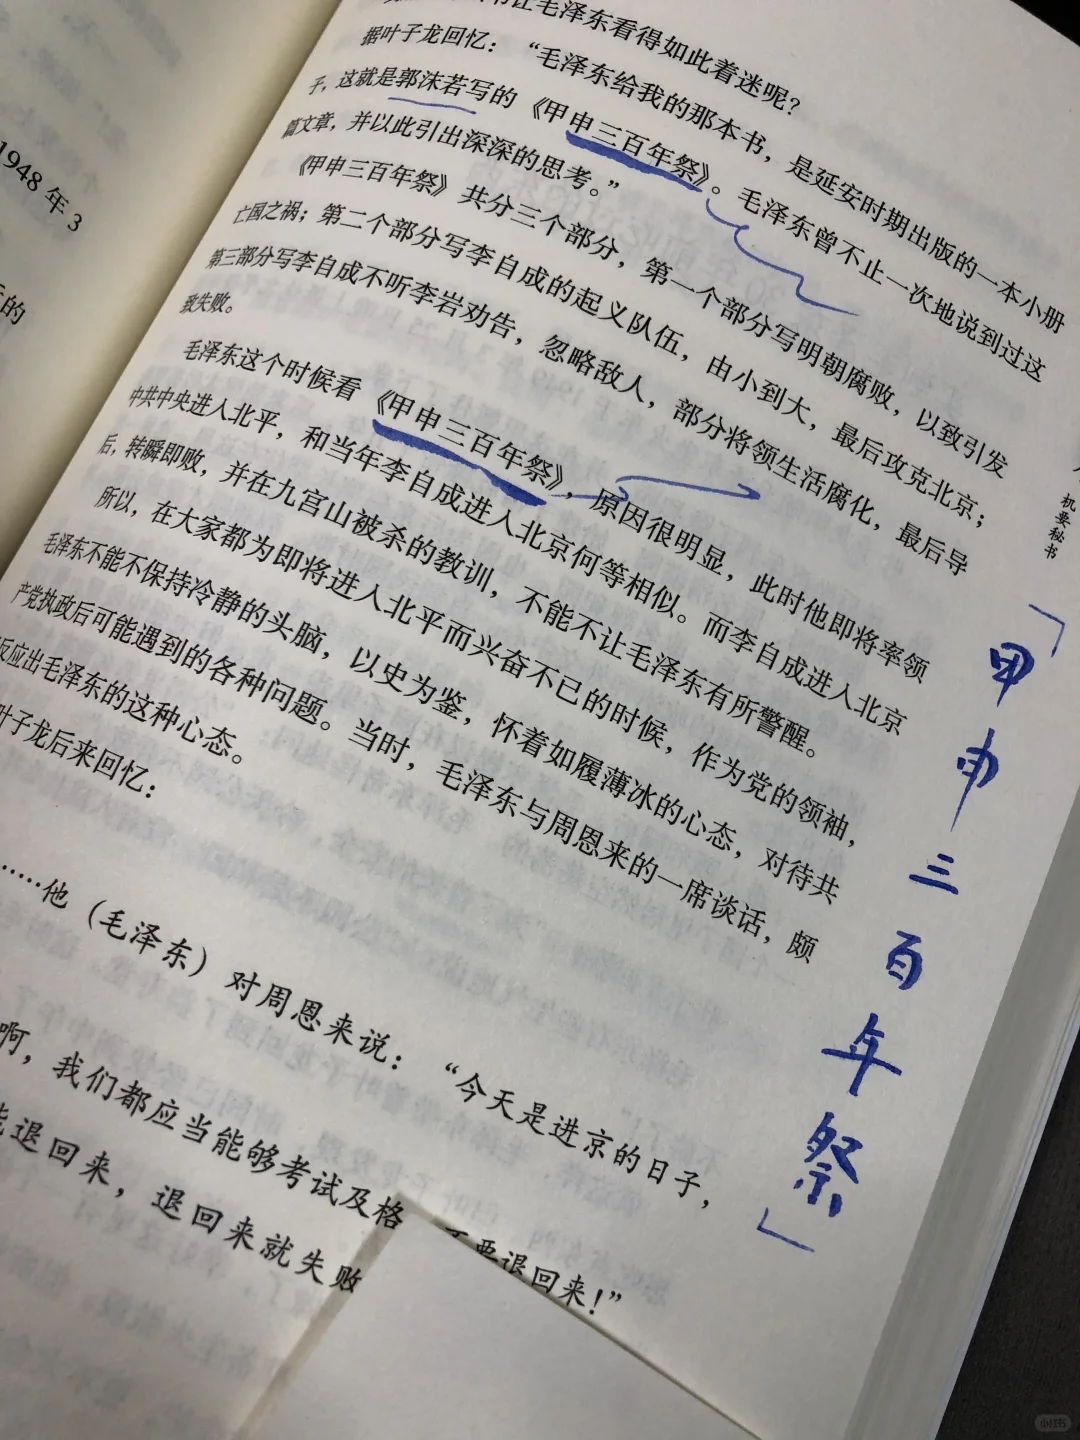 1948年3
的
让毛泽东看得如此着迷呢？
据叶子龙回忆：“毛泽东给我的那本书，是延安时期出版的一本小册
子，这就是郭沫若写的《甲申三百年祭》。毛泽东曾不止一次地说到过这
篇文章，并以此引出深深的思考。”
《甲申三百年祭》共分三个部分，第一个部分写明朝腐败，以致引发
亡国之祸；第二个部分写李自成的起义队伍，由小到大，最后攻克北京；
第三部分写李自成不听李岩劝告，忽略敌人，部分将领生活腐化，最后导
致失败。
毛泽东这个时候看《甲申三百年祭》，原因很明显，此时他即将率领
中共中央进入北平，和当年李自成进入北京何等相似。而李自成进入北京
后，转瞬即败，并在九宫山被杀的教训，不能不让毛泽东有所警醒。
所以，在大家都为即将进入北平而兴奋不已的时候，作为党的领袖，
毛泽东不能不保持冷静的头脑，以史为鉴，怀着如履薄冰的心态，对待共
产党执政后可能遇到的各种问题。当时，毛泽东与周恩来的一席谈话，颇
反应出毛泽东的这种心态。
叶子龙后来回忆：
……他（毛泽东）对周恩来说：“今天是进京的日子，
啊，我们都应当能够考试及格 要退回来！”
能退回来，退回来就失败
机要秘书
「甲申三百年祭」
小红书